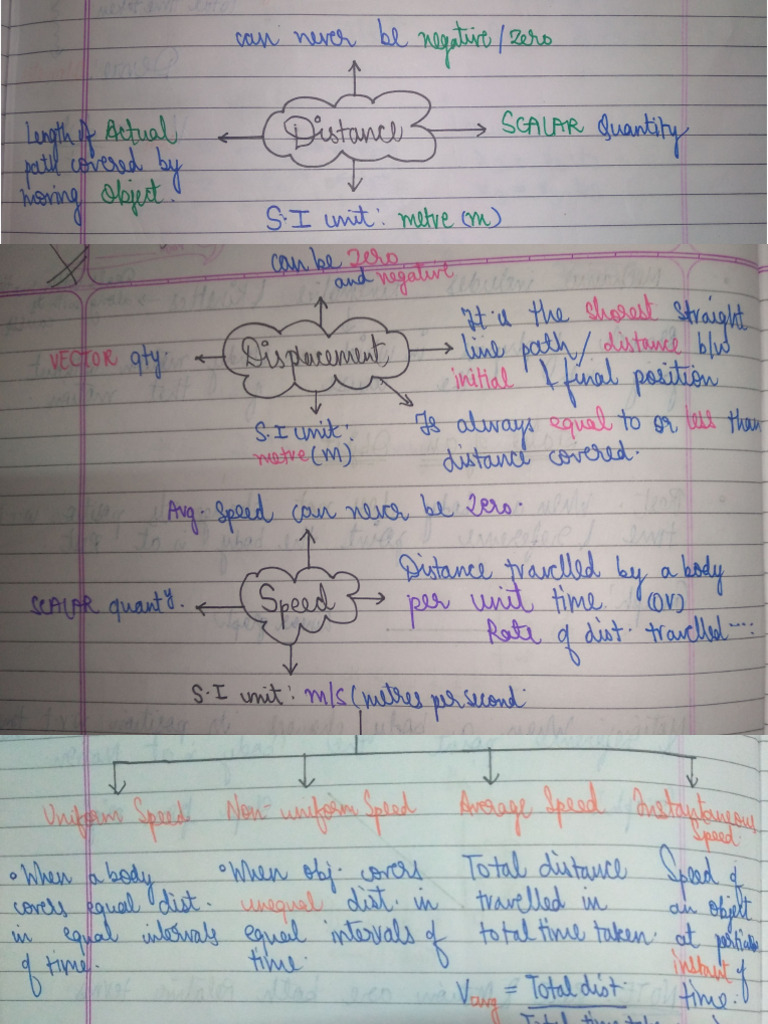 can never be negative/zero
Distance
SCALAR Quantity
Length of Actual
path covered by
moving Object.
S.I unit: metre (m)
can be zero
and negative
Displacement
VECTOR qty.
It is the shorest straight
line path/distance b/w
initial & final position
S.I unit:
metre (m)
Is always equal to or less than
distance covered.
Avg. Speed can never be zero.
Speed
SCALAR quanty.
Distance travelled by a body
per unit time (or)
Rate of dist. travelled...:
S.I unit: m/s (metres per second
Uniform Speed
Non-uniform Speed
Average Speed
Instantaneous
Speed.
• When a body
covers equal dist.
in equal intervals
of time.
• When obj. covers
unequal dist. in
equal intervals of
time.
Total distance
travelled in
total time taken.
Vavg = Total dist.
Total time
Speed of
an object
at
instant of
time.